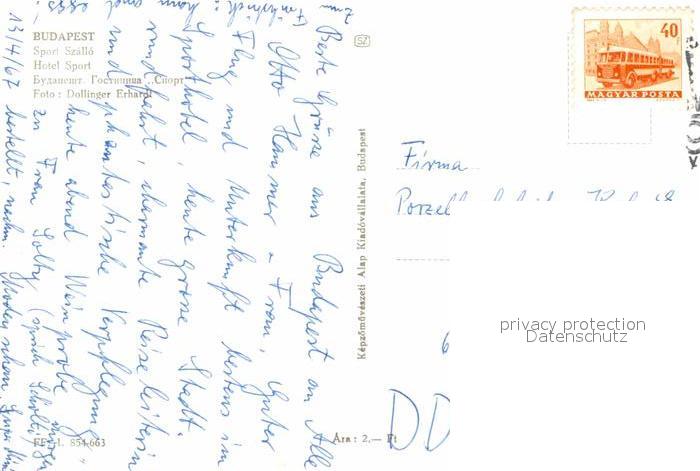 BUDAPEST
Sport Szálló
Hotel Sport
Будапешт. Гостиница „Спорт"
Foto: Dollinger Erhardt
Beste Grüsse aus Budapest an Alle
Otto Hammer u. Frau, guter
Flug und Unterkunft bestens im
Sporthotel, heute grosse Stadt-
rundfahrt, charmante Reiseleiterin
und phantastische Verpflegung
heute abend Weinprobe
zu Frau Solty (sprich
13/4/67 bestellt, nachm. Modenschau,
Képzőművészeti Alap Kiadóvállalata, Budapest
40
MAGYAR POSTA
Firma
privacy protection
Datenschutz
DD
854/663
Ára: 2.— Ft